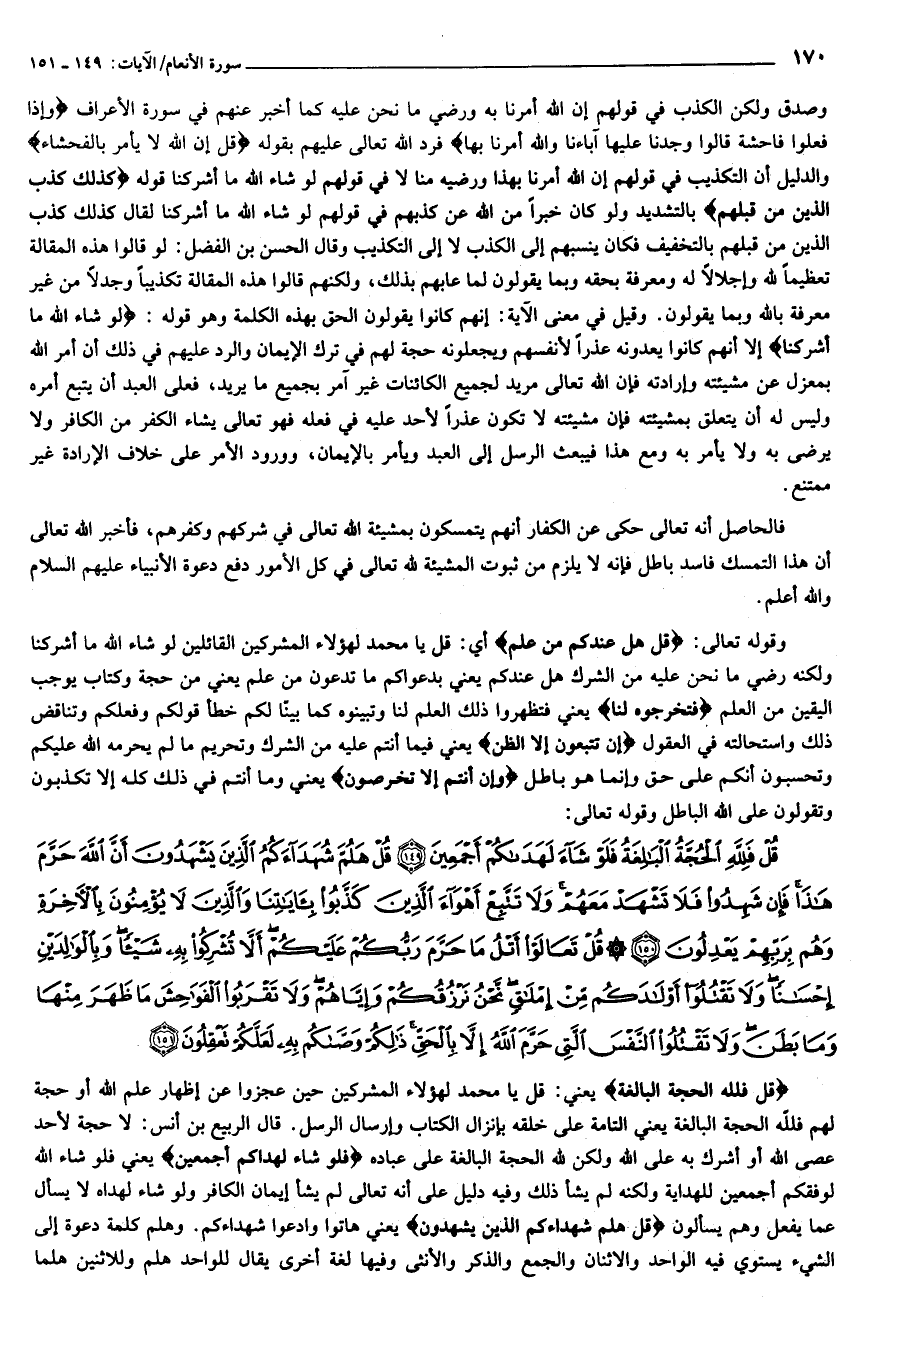 ١٧٠ سورة الأنعام/ الآيات: ١٤٩ ـ ١٥١
وصدق ولكن الكذب في قولهم إن الله أمرنا به ورضي ما نحن عليه كما أخبر عنهم في سورة الأعراف ﴿وإذا
فعلوا فاحشة قالوا وجدنا عليها آباءنا والله أمرنا بها﴾ فرد الله تعالى عليهم بقوله ﴿قل إن الله لا يأمر بالفحشاء﴾
والدليل أن التكذيب في قولهم إن الله أمرنا بهذا ورضيه منا لا في قولهم لو شاء الله ما أشركنا قوله ﴿كذلك كذب
الذين من قبلهم﴾ بالتشديد ولو كان خبراً من الله عن كذبهم في قولهم لو شاء الله ما أشركنا لقال كذلك كذب
الذين من قبلهم بالتخفيف فكان ينسبهم إلى الكذب لا إلى التكذيب وقال الحسن بن الفضل: لو قالوا هذه المقالة
تعظيماً لله وإجلالاً له ومعرفة بحقه وبما يقولون لما عابهم بذلك، ولكنهم قالوا هذه المقالة تكذيباً وجدلاً من غير
معرفة بالله وبما يقولون. وقيل في معنى الآية: إنهم كانوا يقولون الحق بهذه الكلمة وهو قوله : ﴿لو شاء الله ما
أشركنا﴾ إلا أنهم كانوا يعدونه عذراً لأنفسهم ويجعلونه حجة لهم في ترك الإيمان والرد عليهم في ذلك أن أمر الله
بمعزل عن مشيئته وإرادته فإن الله تعالى مريد لجميع الكائنات غير آمر بجميع ما يريد، فعلى العبد أن يتبع أمره
وليس له أن يتعلق بمشيئته فإن مشيئته لا تكون عذراً لأحد عليه في فعله فهو تعالى يشاء الكفر من الكافر ولا
يرضى به ولا يأمر به ومع هذا فيبعث الرسل إلى العبد ويأمر بالإيمان، وورود الأمر على خلاف الإرادة غير
ممتنع.
فالحاصل أنه تعالى حكى عن الكفار أنهم يتمسكون بمشيئة الله تعالى في شركهم وكفرهم، فأخبر الله تعالى
أن هذا التمسك فاسد باطل فإنه لا يلزم من ثبوت المشيئة لله تعالى في كل الأمور دفع دعوة الأنبياء عليهم السلام
والله أعلم.
وقوله تعالى: ﴿قل هل عندكم من علم﴾ أي: قل يا محمد لهؤلاء المشركين القائلين لو شاء الله ما أشركنا
ولكنه رضي ما نحن عليه من الشرك هل عندكم يعني بدعواكم ما تدعون من علم يعني من حجة وكتاب يوجب
اليقين من العلم ﴿فتخرجوه لنا﴾ يعني فتظهروا ذلك العلم لنا وتبينوه كما بينّا لكم خطأ قولكم وفعلكم وتناقض
ذلك واستحالته في العقول ﴿إن تتبعون إلا الظن﴾ يعني فيما أنتم عليه من الشرك وتحريم ما لم يحرمه الله عليكم
وتحسبون أنكم على حق وإنما هو باطل ﴿وإن أنتم إلا تخرصون﴾ يعني وما أنتم في ذلك كله إلا تكذبون
وتقولون على الله الباطل وقوله تعالى:
قُلْ فَلِلَّهِ الْحُجَّةُ الْبَالِغَةُ فَلَوْ شَاءَ لَهَدَىٰكُمْ أَجْمَعِينَ ﴿١٤٩﴾ قُلْ هَلُمَّ شُهَدَاءَكُمُ الَّذِينَ يَشْهَدُونَ أَنَّ اللَّهَ حَرَّمَ
هَٰذَا فَإِن شَهِدُوا فَلَا تَشْهَدْ مَعَهُمْ وَلَا تَتَّبِعْ أَهْوَاءَ الَّذِينَ كَذَّبُوا بِـَٔايَٰتِنَا وَالَّذِينَ لَا يُؤْمِنُونَ بِالْآخِرَةِ
وَهُم بِرَبِّهِمْ يَعْدِلُونَ ﴿١٥٠﴾ ۞ قُلْ تَعَالَوْا أَتْلُ مَا حَرَّمَ رَبُّكُمْ عَلَيْكُمْ أَلَّا تُشْرِكُوا بِهِ شَيْئًا وَبِالْوَالِدَيْنِ
إِحْسَٰنًا وَلَا تَقْتُلُوا أَوْلَٰدَكُم مِّنْ إِمْلَٰقٍ نَّحْنُ نَرْزُقُكُمْ وَإِيَّاهُمْ وَلَا تَقْرَبُوا الْفَوَٰحِشَ مَا ظَهَرَ مِنْهَا
وَمَا بَطَنَ وَلَا تَقْتُلُوا النَّفْسَ الَّتِي حَرَّمَ اللَّهُ إِلَّا بِالْحَقِّ ذَٰلِكُمْ وَصَّىٰكُم بِهِ لَعَلَّكُمْ تَعْقِلُونَ ﴿١٥١﴾
﴿قل فلله الحجة البالغة﴾ يعني: قل يا محمد لهؤلاء المشركين حين عجزوا عن إظهار علم الله أو حجة
لهم فللّه الحجة البالغة يعني التامة على خلقه بإنزال الكتاب وإرسال الرسل. قال الربيع بن أنس: لا حجة لأحد
عصى الله أو أشرك به على الله ولكن لله الحجة البالغة على عباده ﴿فلو شاء لهداكم أجمعين﴾ يعني فلو شاء الله
لوفقكم أجمعين للهداية ولكنه لم يشأ ذلك وفيه دليل على أنه تعالى لم يشأ إيمان الكافر ولو شاء لهداه لا يسأل
عما يفعل وهم يسألون ﴿قل هلم شهداءكم الذين يشهدون﴾ يعني هاتوا وادعوا شهداءكم. وهلم كلمة دعوة إلى
الشيء يستوي فيه الواحد والاثنان والجمع والذكر والأنثى وفيها لغة أخرى يقال للواحد هلم وللاثنين هلما